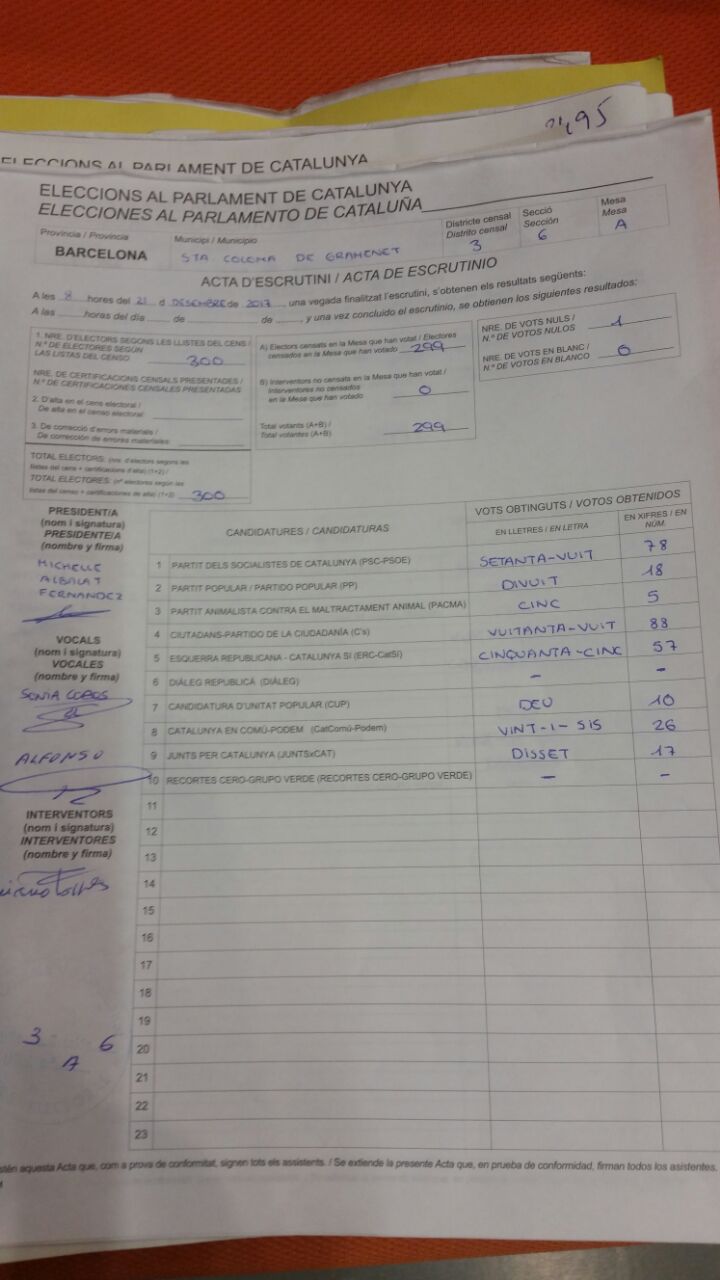 21,95
ELECCIONS AL PARLAMENT DE CATALUNYA
ELECCIONS AL PARLAMENT DE CATALUNYA
ELECCIONES AL PARLAMENTO DE CATALUÑA
Província / Provincia
BARCELONA
Municipi / Municipio
STA COLOMA DE GRAMENET
Districte censal
Distrito censal
3
Secció
Sección
6
Mesa
Mesa
A
ACTA D'ESCRUTINI / ACTA DE ESCRUTINIO
A les 8 hores del 21 d DESEMBRE de 2017, una vegada finalitzat l'escrutini, s'obtenen els resultats següents:
A las ____ horas del día ____ de ____ de ____, y una vez concluido el escrutinio, se obtienen los siguientes resultados:
1. NRE. D'ELECTORS SEGONS LES LLISTES DEL CENS /
N.º DE ELECTORES SEGÚN
LAS LISTAS DEL CENSO 300
NRE. DE CERTIFICACIONS CENSALS PRESENTADES /
N.º DE CERTIFICACIONES CENSALES PRESENTADAS
2. D'alta en el cens electoral /
De alta en el censo electoral:
3. De correcció d'errors materials /
De corrección de errores materiales:
TOTAL ELECTORS: (nre. d'electors segons les
llistes del cens + certificacions d'alta) (1+2) /
TOTAL ELECTORES: (nº electores según las
listas del censo + certificaciones de alta) (1+2) 300
A) Electors censats en la Mesa que han votat / Electores
censados en la Mesa que han votado 299
B) Interventors no censats en la Mesa que han votat /
Interventores no censados
en la Mesa que han votado 0
Total votants (A+B) /
Total votantes (A+B) 299
NRE. DE VOTS NULS /
N.º DE VOTOS NULOS 1
NRE. DE VOTS EN BLANC /
N.º DE VOTOS EN BLANCO 0
PRESIDENT/A
(nom i signatura)
PRESIDENTE/A
(nombre y firma)
MICHELLE
ALBALAT
FERNANDEZ
VOCALS
(nom i signatura)
VOCALES
(nombre y firma)
SONIA COBOS
ALFONSO
INTERVENTORS
(nom i signatura)
INTERVENTORES
(nombre y firma)
3 6
A
CANDIDATURES / CANDIDATURAS
VOTS OBTINGUTS / VOTOS OBTENIDOS
EN LLETRES / EN LETRA
EN XIFRES / EN NÚM.
1 PARTIT DELS SOCIALISTES DE CATALUNYA (PSC-PSOE) SETANTA-VUIT 78
2 PARTIT POPULAR / PARTIDO POPULAR (PP) DIVUIT 18
3 PARTIT ANIMALISTA CONTRA EL MALTRACTAMENT ANIMAL (PACMA) CINC 5
4 CIUTADANS-PARTIDO DE LA CIUDADANÍA (C's) VUITANTA-VUIT 88
5 ESQUERRA REPUBLICANA - CATALUNYA SÍ (ERC-CatSí) CINQUANTA-CINC 57
6 DIÀLEG REPUBLICÀ (DIÀLEG) - -
7 CANDIDATURA D'UNITAT POPULAR (CUP) DEU 10
8 CATALUNYA EN COMÚ-PODEM (CatComú-Podem) VINT-I-SIS 26
9 JUNTS PER CATALUNYA (JUNTSxCAT) DISSET 17
10 RECORTES CERO-GRUPO VERDE (RECORTES CERO-GRUPO VERDE) - -
11
12
13
14
15
16
17
18
19
20
21
22
23
stén aquesta Acta que, com a prova de conformitat, signen tots els assistents. / Se extiende la presente Acta que, en prueba de conformidad, firman todos los asistentes,